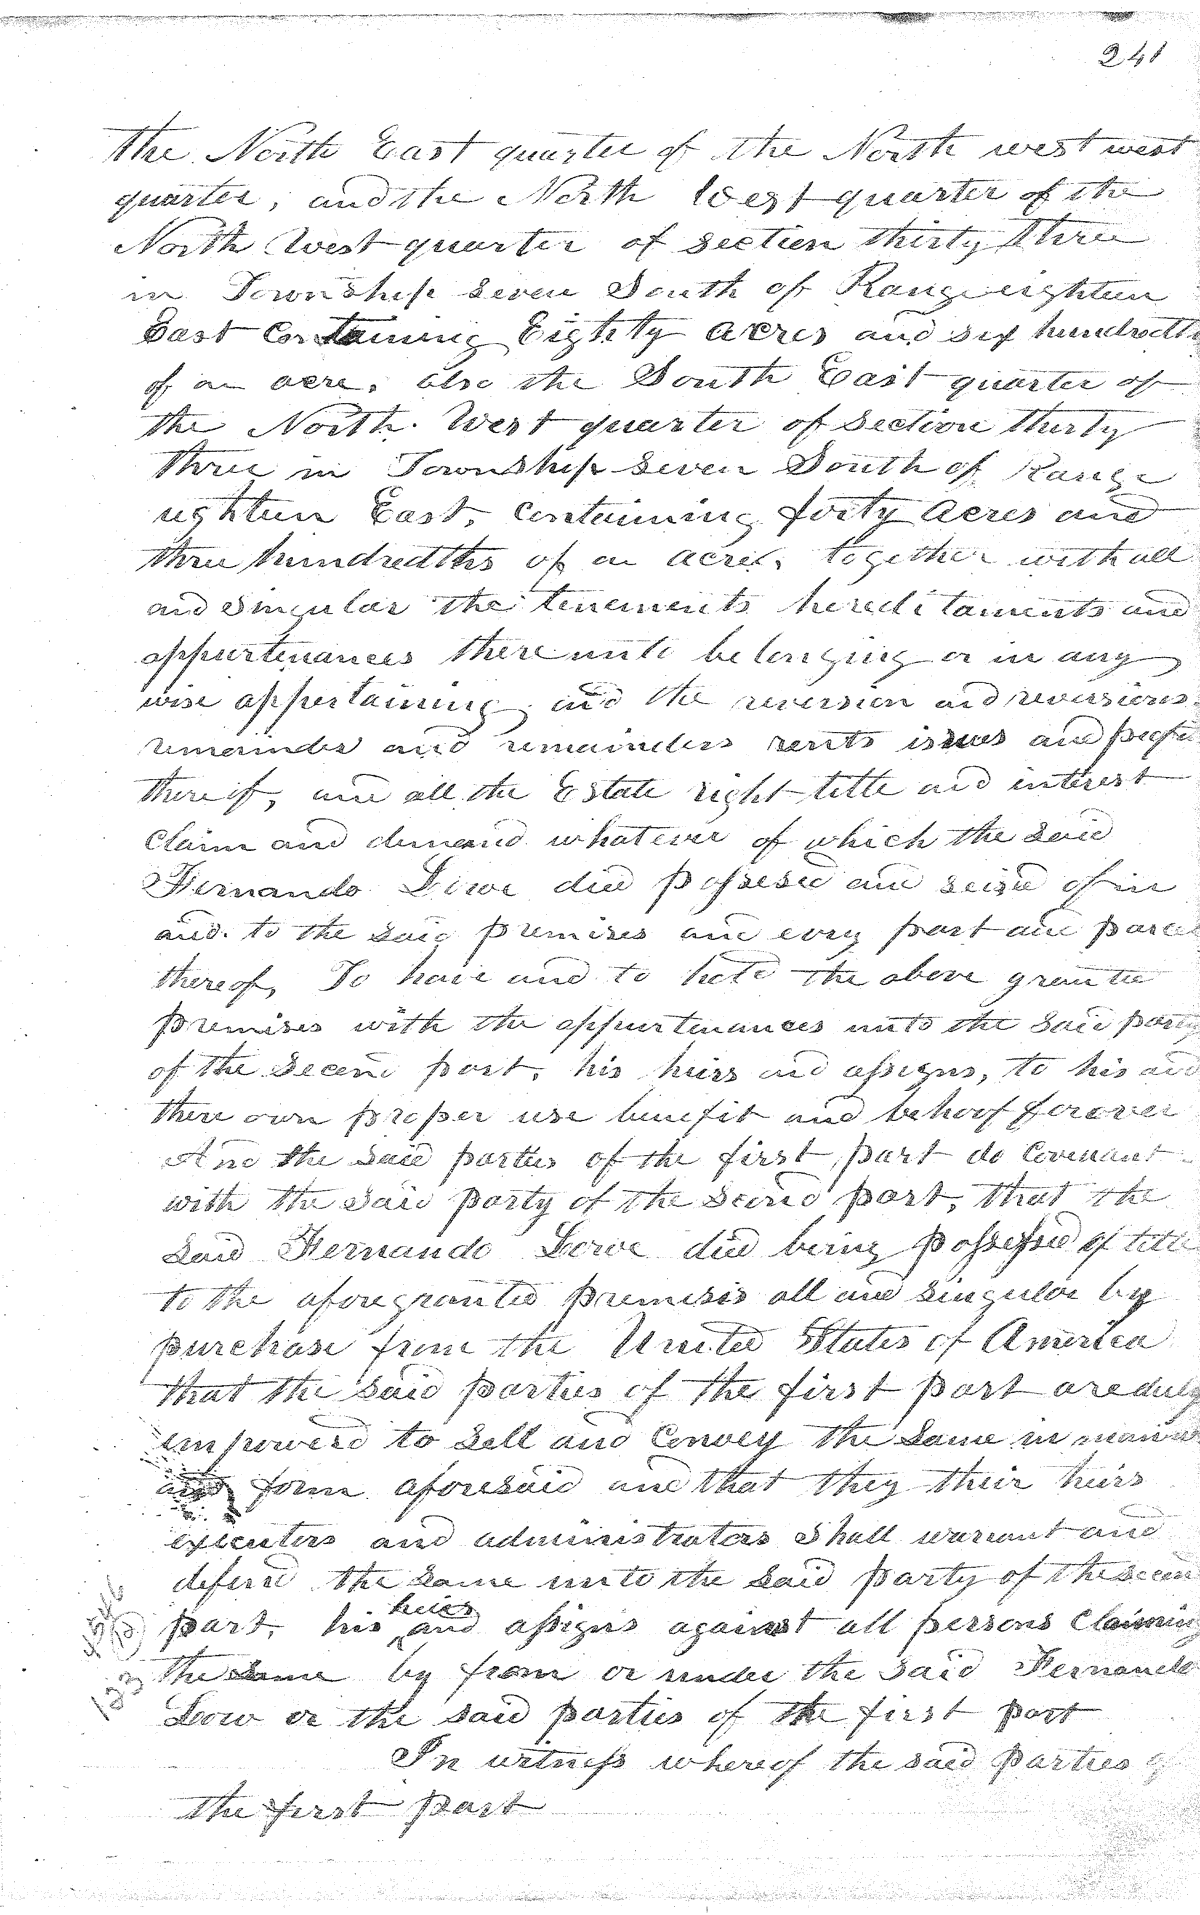 241
the North East quarter of the North west west
quarter, and the North West quarter of the
North West quarter of section thirty three
in Township seven South of Range eighteen
East Containing Eighty acres and six hundredths
of an acre, also the South East quarter of
the North West quarter of section thirty
three in Township seven South of Range
eighteen East, containing forty acres and
three hundredths of an acre, together with all
and singular the tenements hereditaments and
appurtenances thereunto belonging or in any
wise appertaining and the reversion and reversions
remainder and remainders rents issues and profits
thereof, and all the Estate right title and interest
Claim and demand whatever of which the said
Fernando Lowe died possesed and seized of in
and to the said premises and evry part and parcel
thereof, To have and to hold the above granted
premises with the appurtenances unto the said party
of the Second part, his heirs and assigns, to his and
there own proper use benefit and behoof forever
And the said parties of the first part do Covenant
with the said party of the second part, that the
Said Fernando Lowe died being possessed of title
to the aforegranted premises all and singular by
purchase from the United States of America
that the said parties of the first part are duly
empowered to Sell and Convey the same in manner
and form aforesaid and that they their heirs
executors and administrators shall warrant and
defend the same unto the said party of the second
heirs
part, his and assigns against all persons claiming
the same by from or under the said Fernando
Low or the said parties of the first part
In witness whereof the said parties of
the first part